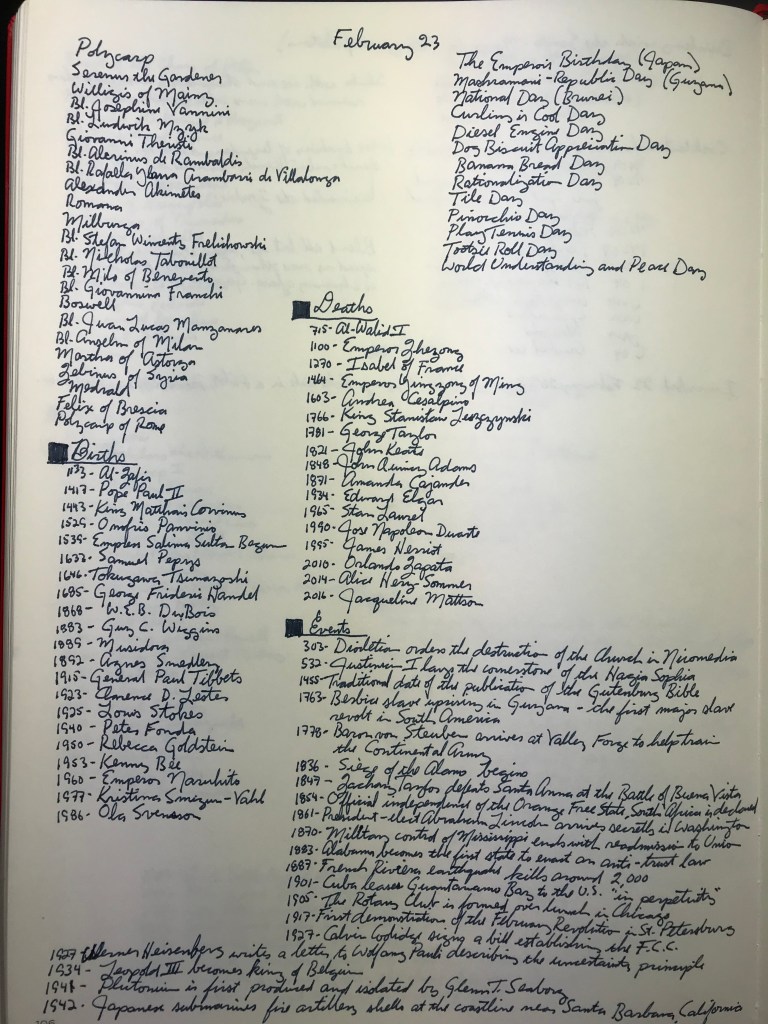 February 23
Polycarp
Serenus the Gardener
Willigis of Mainz
Bl. Josephine Vannini
Bl. Ludwik Mzyk
Giovanni Theristi
Bl. Alerinus de Rambaldis
Bl. Rafaela Ybarra Arambarri de Villalonga
Alexander Akimetes
Romana
Milburga
Bl. Stefan Wincenty Frelichowski
Bl. Nicholas Tabouillot
Bl. Milo of Benevento
Bl. Giovannina Franchi
Boswell
Bl. Juan Lucas Manzanares
Bl. Angelus of Milan
Martha of Astorga
Zebinus of Syria
Medrald
Felix of Brescia
Polycarp of Rome
The Emperor's Birthday (Japan)
Mashramani-Republic Day (Guyana)
National Day (Brunei)
Curling is Cool Day
Diesel Engine Day
Dog Biscuit Appreciation Day
Banana Bread Day
Rationalization Day
Tile Day
Pinocchio Day
Play Tennis Day
Tootsie Roll Day
World Understanding and Peace Day
Births
1133- Al-Zafir
1417- Pope Paul II
1443- King Matthias Corvinus
1529- Onofrio Panvinio
1539- Empress Salima Sultan Begum
1633- Samuel Pepys
1646- Tokugawa Tsunayoshi
1685- George Frideric Handel
1868- W.E.B. DuBois
1883- Guy C. Wiggins
1889- Musidora
1892- Agnes Smedley
1915- General Paul Tibbets
1923- Clarence D. Lester
1925- Louis Stokes
1940- Peter Fonda
1950- Rebecca Goldstein
1953- Kenny Bee
1960- Emperor Naruhito
1977- Kristina Smigun-Vahl
1986- Ola Svensson
Deaths
715- Al-Walid I
1100- Emperor Zhezong
1270- Isabel of France
1464- Emperor Yingzong of Ming
1603- Andrea Cesalpino
1766- King Stanislaw Leszczynski
1781- George Taylor
1821- John Keats
1848- John Quincy Adams
1871- Amanda Cajander
1934- Edward Elgar
1965- Stan Laurel
1990- Jose Napoleon Duarte
1995- James Herriot
2010- Orlando Zapata
2014- Alice Herz-Sommer
2016- Jacqueline Mattson
Events
303- Diocletian orders the destruction of the Church in Nicomedia
532- Justinian I lays the cornerstone of the Hagia Sophia
1455- Traditional date of the publication of the Gutenburg Bible
1763- Berbice slave uprising in Guyana - the first major slave
revolt in South America
1778- Baron von Steuben arrives at Valley Forge to help train
the Continental Army
1836- Siege of the Alamo begins
1847- Zachary Taylor defeats Santa Anna at the Battle of Buena Vista
1854- Official independence of the Orange Free State, South Africa is declared
1861- President-elect Abraham Lincoln arrives secretly in Washington
1870- Military control of Mississippi ends with readmission to Union
1883- Alabama becomes the first state to enact an anti-trust law
1887- French Riviera earthquake kills around 2,000
1901- Cuba leases Guantanamo Bay to the U.S. "in perpetuity"
1905- The Rotary Club is formed over lunch in Chicago
1917- First demonstration of the February Revolution in St. Petersburg
1927- Calvin Coolidge signs a bill establishing the F.C.C.
1927 Werner Heisenberg writes a letter to Wolfgang Pauli describing the uncertainty principle
1934- Leopold III becomes king of Belgium
1941- Plutonium is first produced and isolated by Glenn T. Seaborg
1942- Japanese submarines fire artillery shells at the coastline near Santa Barbara, California